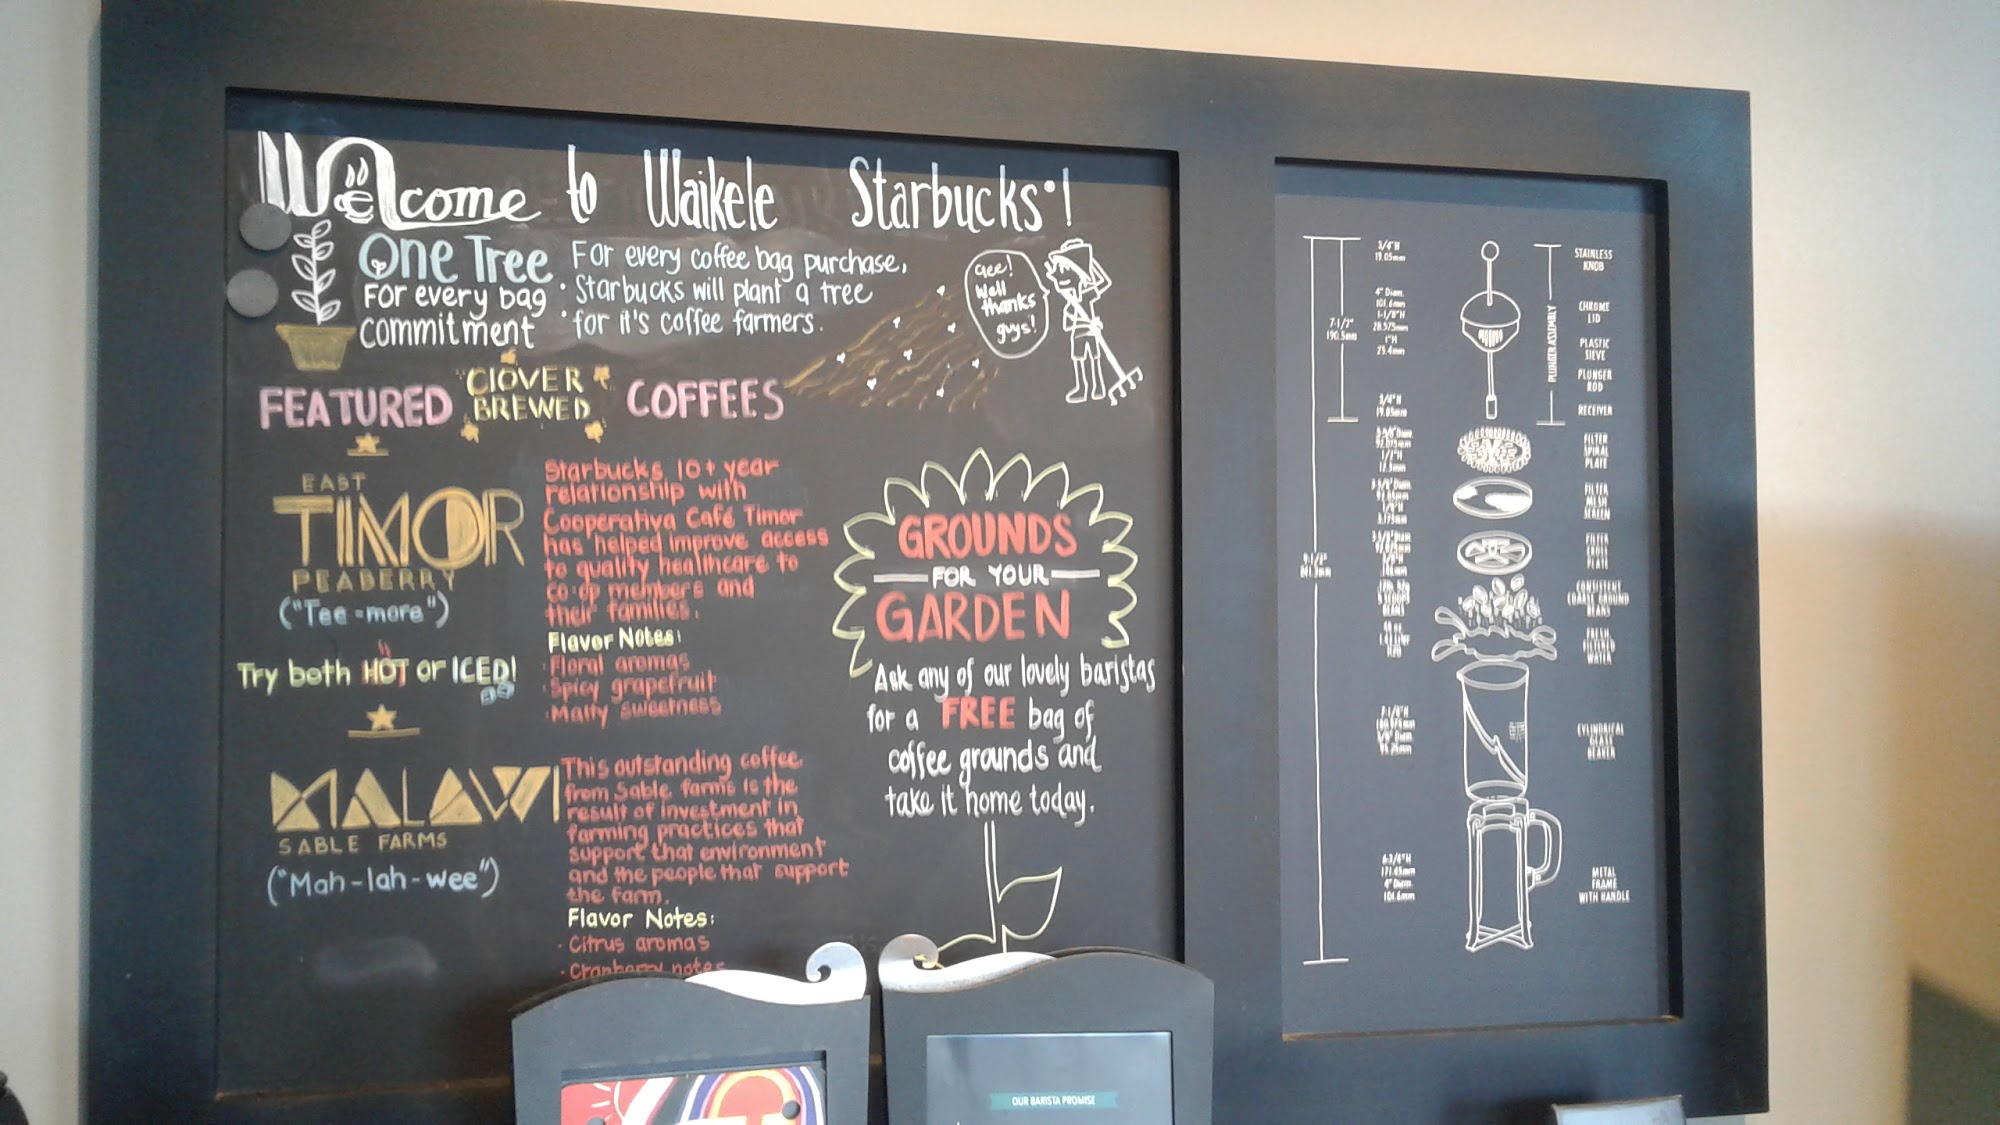 Welcome to Waikele Starbucks!
One Tree
For every bag
commitment
For every coffee bag purchase,
Starbucks will plant a tree
for it's coffee farmers.
Gee!
Well
thanks
guys!
FEATURED
CLOVER
BREWED
COFFEES
EAST
TIMOR
PEABERRY
("Tee-more")
Starbucks 10+ year
relationship with
Cooperativa Café Timor
has helped improve access
to quality healthcare to
co-op members and
their families.
Flavor Notes:
· Floral aromas
· Spicy grapefruit
· Malty sweetness
Try both HOT or ICED!
MALAWI
SABLE FARMS
("Mah-lah-wee")
This outstanding coffee
from Sable farms is the
result of investment in
farming practices that
support that environment
and the people that support
the farm.
Flavor Notes:
· Citrus aromas
· Cranberry notes
GROUNDS
FOR YOUR
GARDEN
Ask any of our lovely baristas
for a FREE bag of
coffee grounds and
take it home today.
OUR BARISTA PROMISE
3/4"H
19.05mm
4" Diam.
101.6mm
1-1/8"H
28.575mm
1"H
25.4mm
7-1/2"
190.5mm
3/4"H
19.05mm
9-1/2"
241.3mm
6-3/4"H
171.45mm
4" Diam.
101.6mm
PLUNGER ASSEMBLY
STAINLESS
KNOB
CHROME
LID
PLASTIC
SIEVE
PLUNGER
ROD
RECEIVER
FILTER
SPIRAL
PLATE
FILTER
MESH
SCREEN
FILTER
CROSS
PLATE
CONSISTENT
COARSE GROUND
BEANS
FRESH
FILTERED
WATER
CYLINDRICAL
GLASS
BEAKER
METAL
FRAME
WITH HANDLE